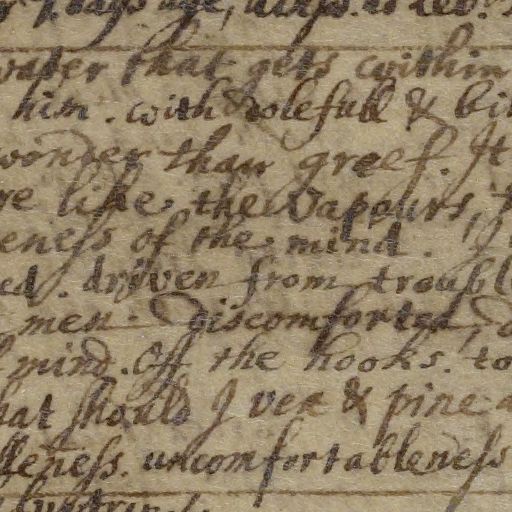 days age,
water that gets within
him. with dolefull & bit
wonder than greef. It
re like the Vapours, t
eness of the mind. I
ed. driven from trouble
men. Discomforted, d
mind. Off the hooks. to
hat should I vex & pine a
lleness. uncomfortableness